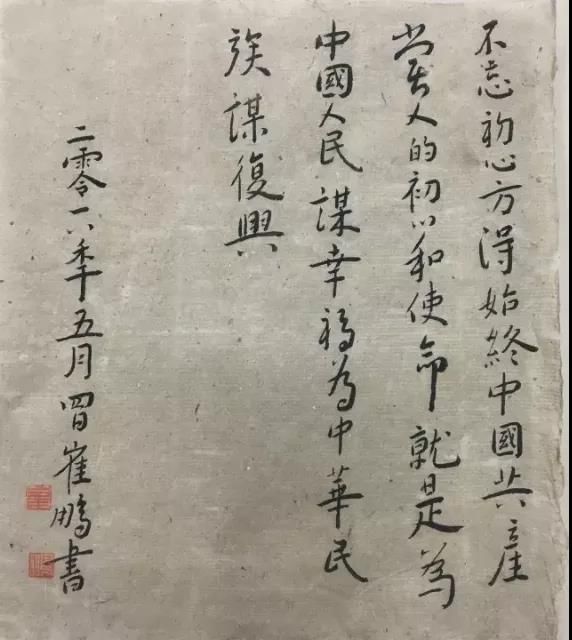 不忘初心方得始終中國共產
黨人的初心和使命就是為
中國人民謀幸福為中華民
族謀復興
二零一八秊五月四日崔鵬書